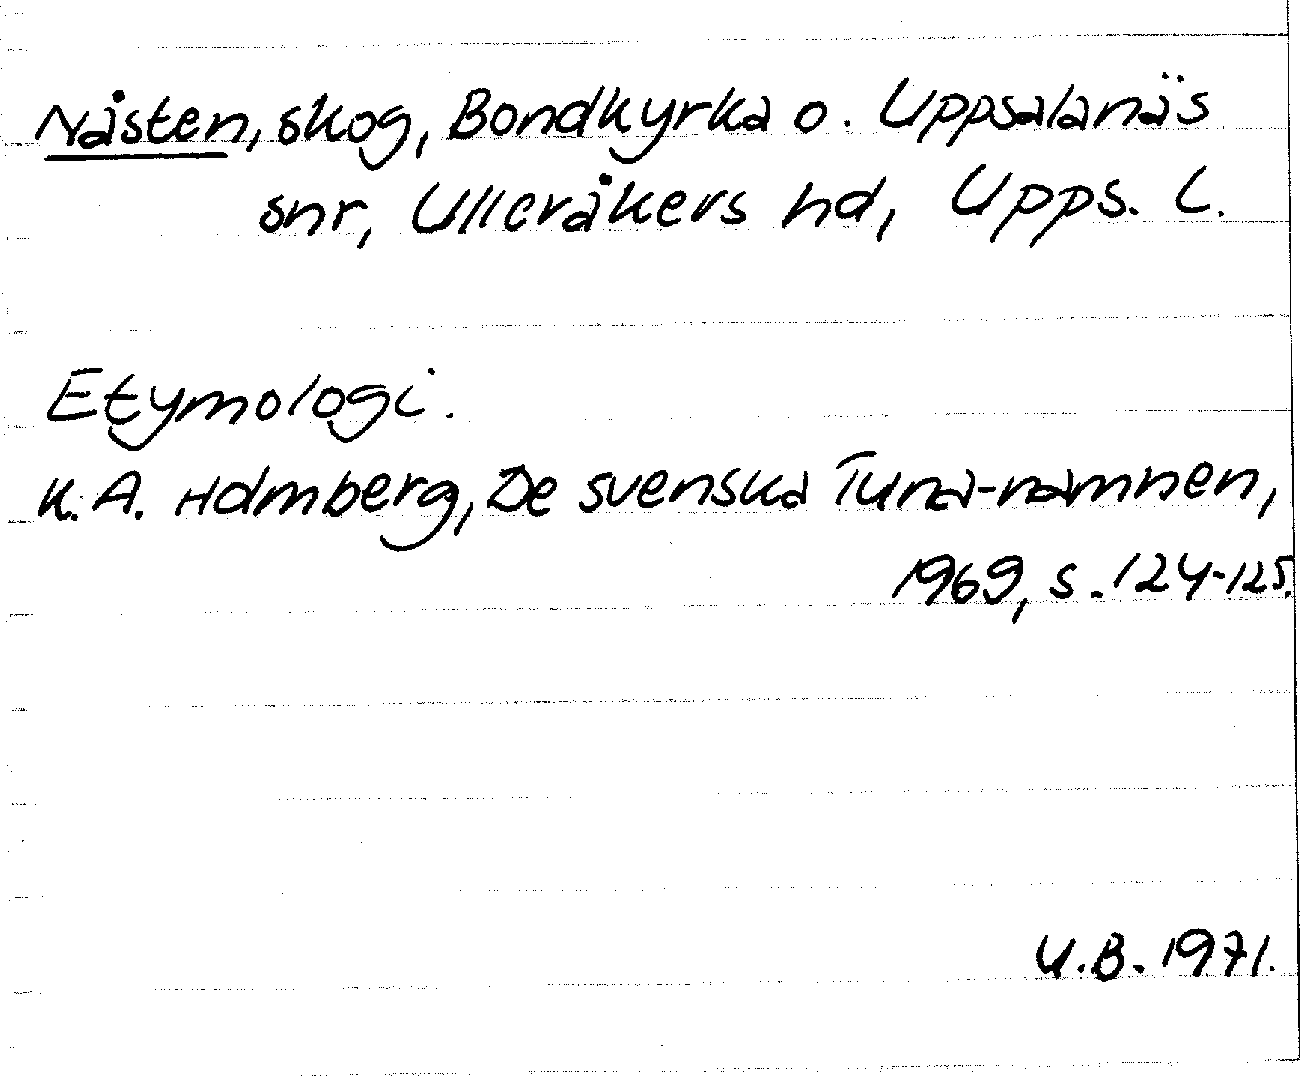 Nåsten, skog, Bondkyrka o. Uppsalanäs
snr, Ulleråkers hd, Upps. L.
Etymologi.
K. A. Holmberg, De svenska Tuna-namnen,
1969, s. 124-125.
U.B. 1971.